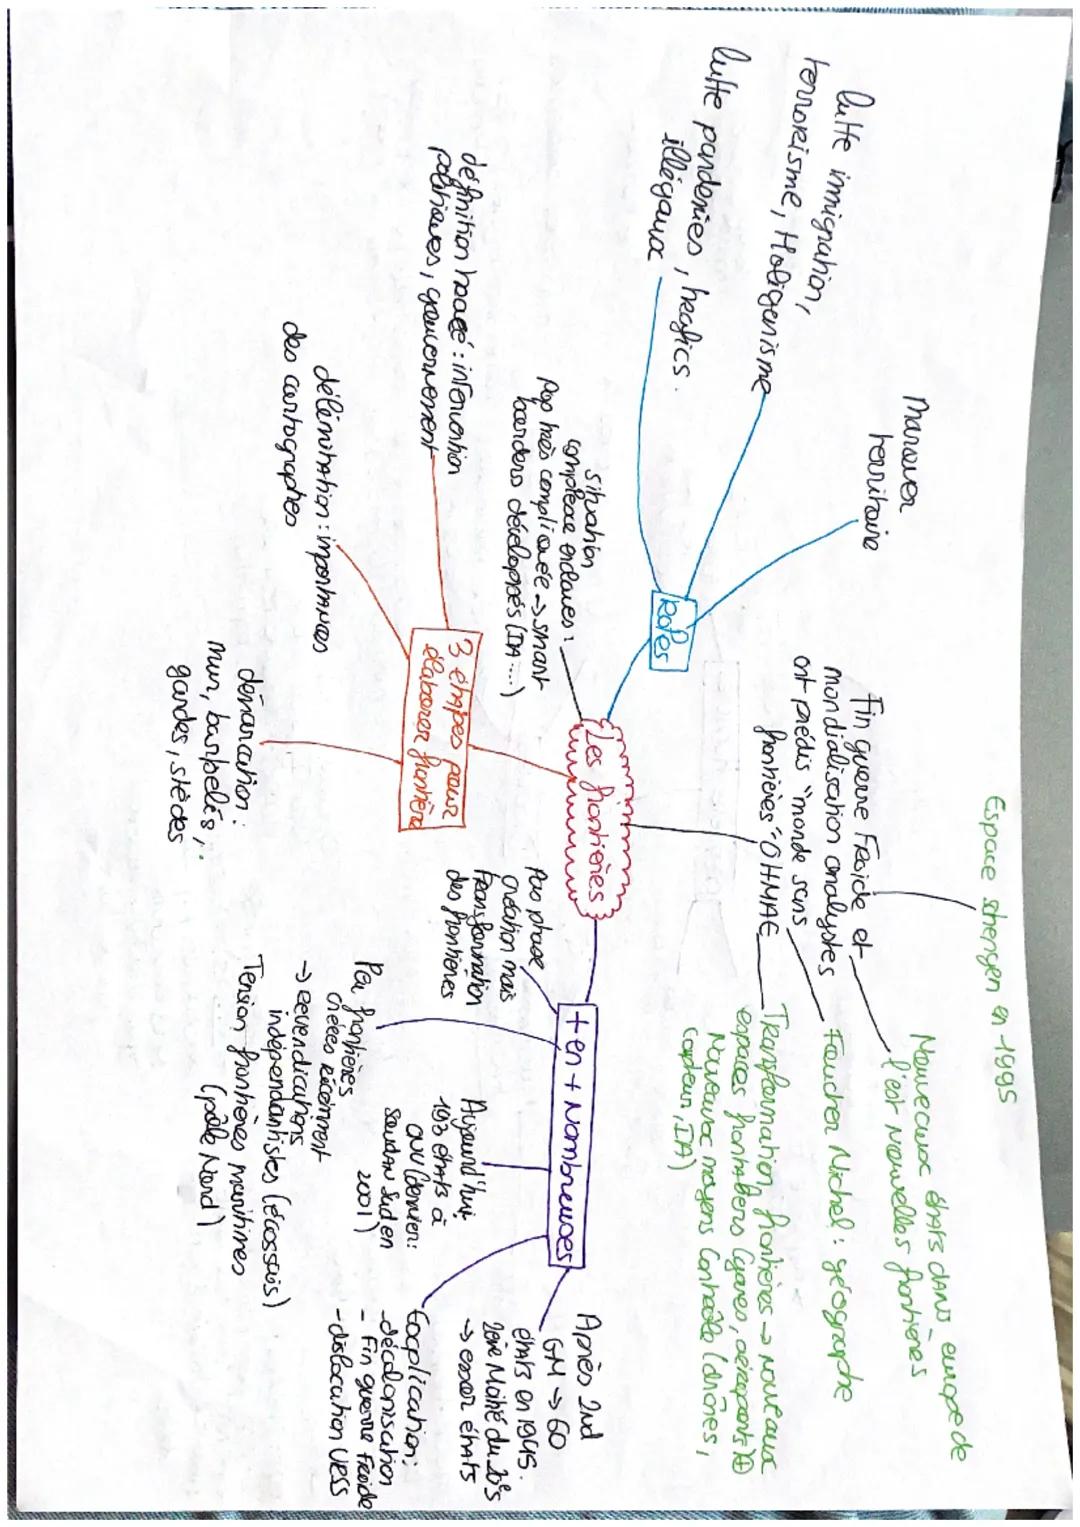 Les frontières
Rôles
Marquer
territoire
lutte immigration,
terrorisme, Holigenisme
lutte pandemies, trafics
illégaux
situation
complexe enclaves :
Pop très compliquée → smart
borders développés (IA....)
3 étapes pour
élaborer frontière
définition tracé : intervention
politiques, gouvernement
délimitation : importances
des cartographes
démarcation :
mur, barbelés,
gardes, stèdes
Fin guerre Froide et
mondialisation analystes
ont prédis "monde sans
frontières" OHMAE
Espace shengen en 1995
Nouveaux états dans europe de
l'est nouvelles frontières
Foucher Michel : géographe
Transformation frontières → nouveaux
espaces frontaliers (gares, aéroports) +
Nouveaux moyens contrôle (drônes,
capteur, IA)
+ en + Nombreuses
Pas phase
création mais
Transformation
des frontières
Peu frontières
créées récemment
→ revendications
indépendantistes (écossais)
Tension frontières maritimes
(pôle Nord)
Aujourd'hui
193 états à
ONU (dernier :
soudan sud en
2001)
Après 2nd
GM → 60
états en 1945.
2ème Moitié du 20e s
→ essor états
Explication :
- décolonisation
- Fin guerre Froide
- dislocation URSS